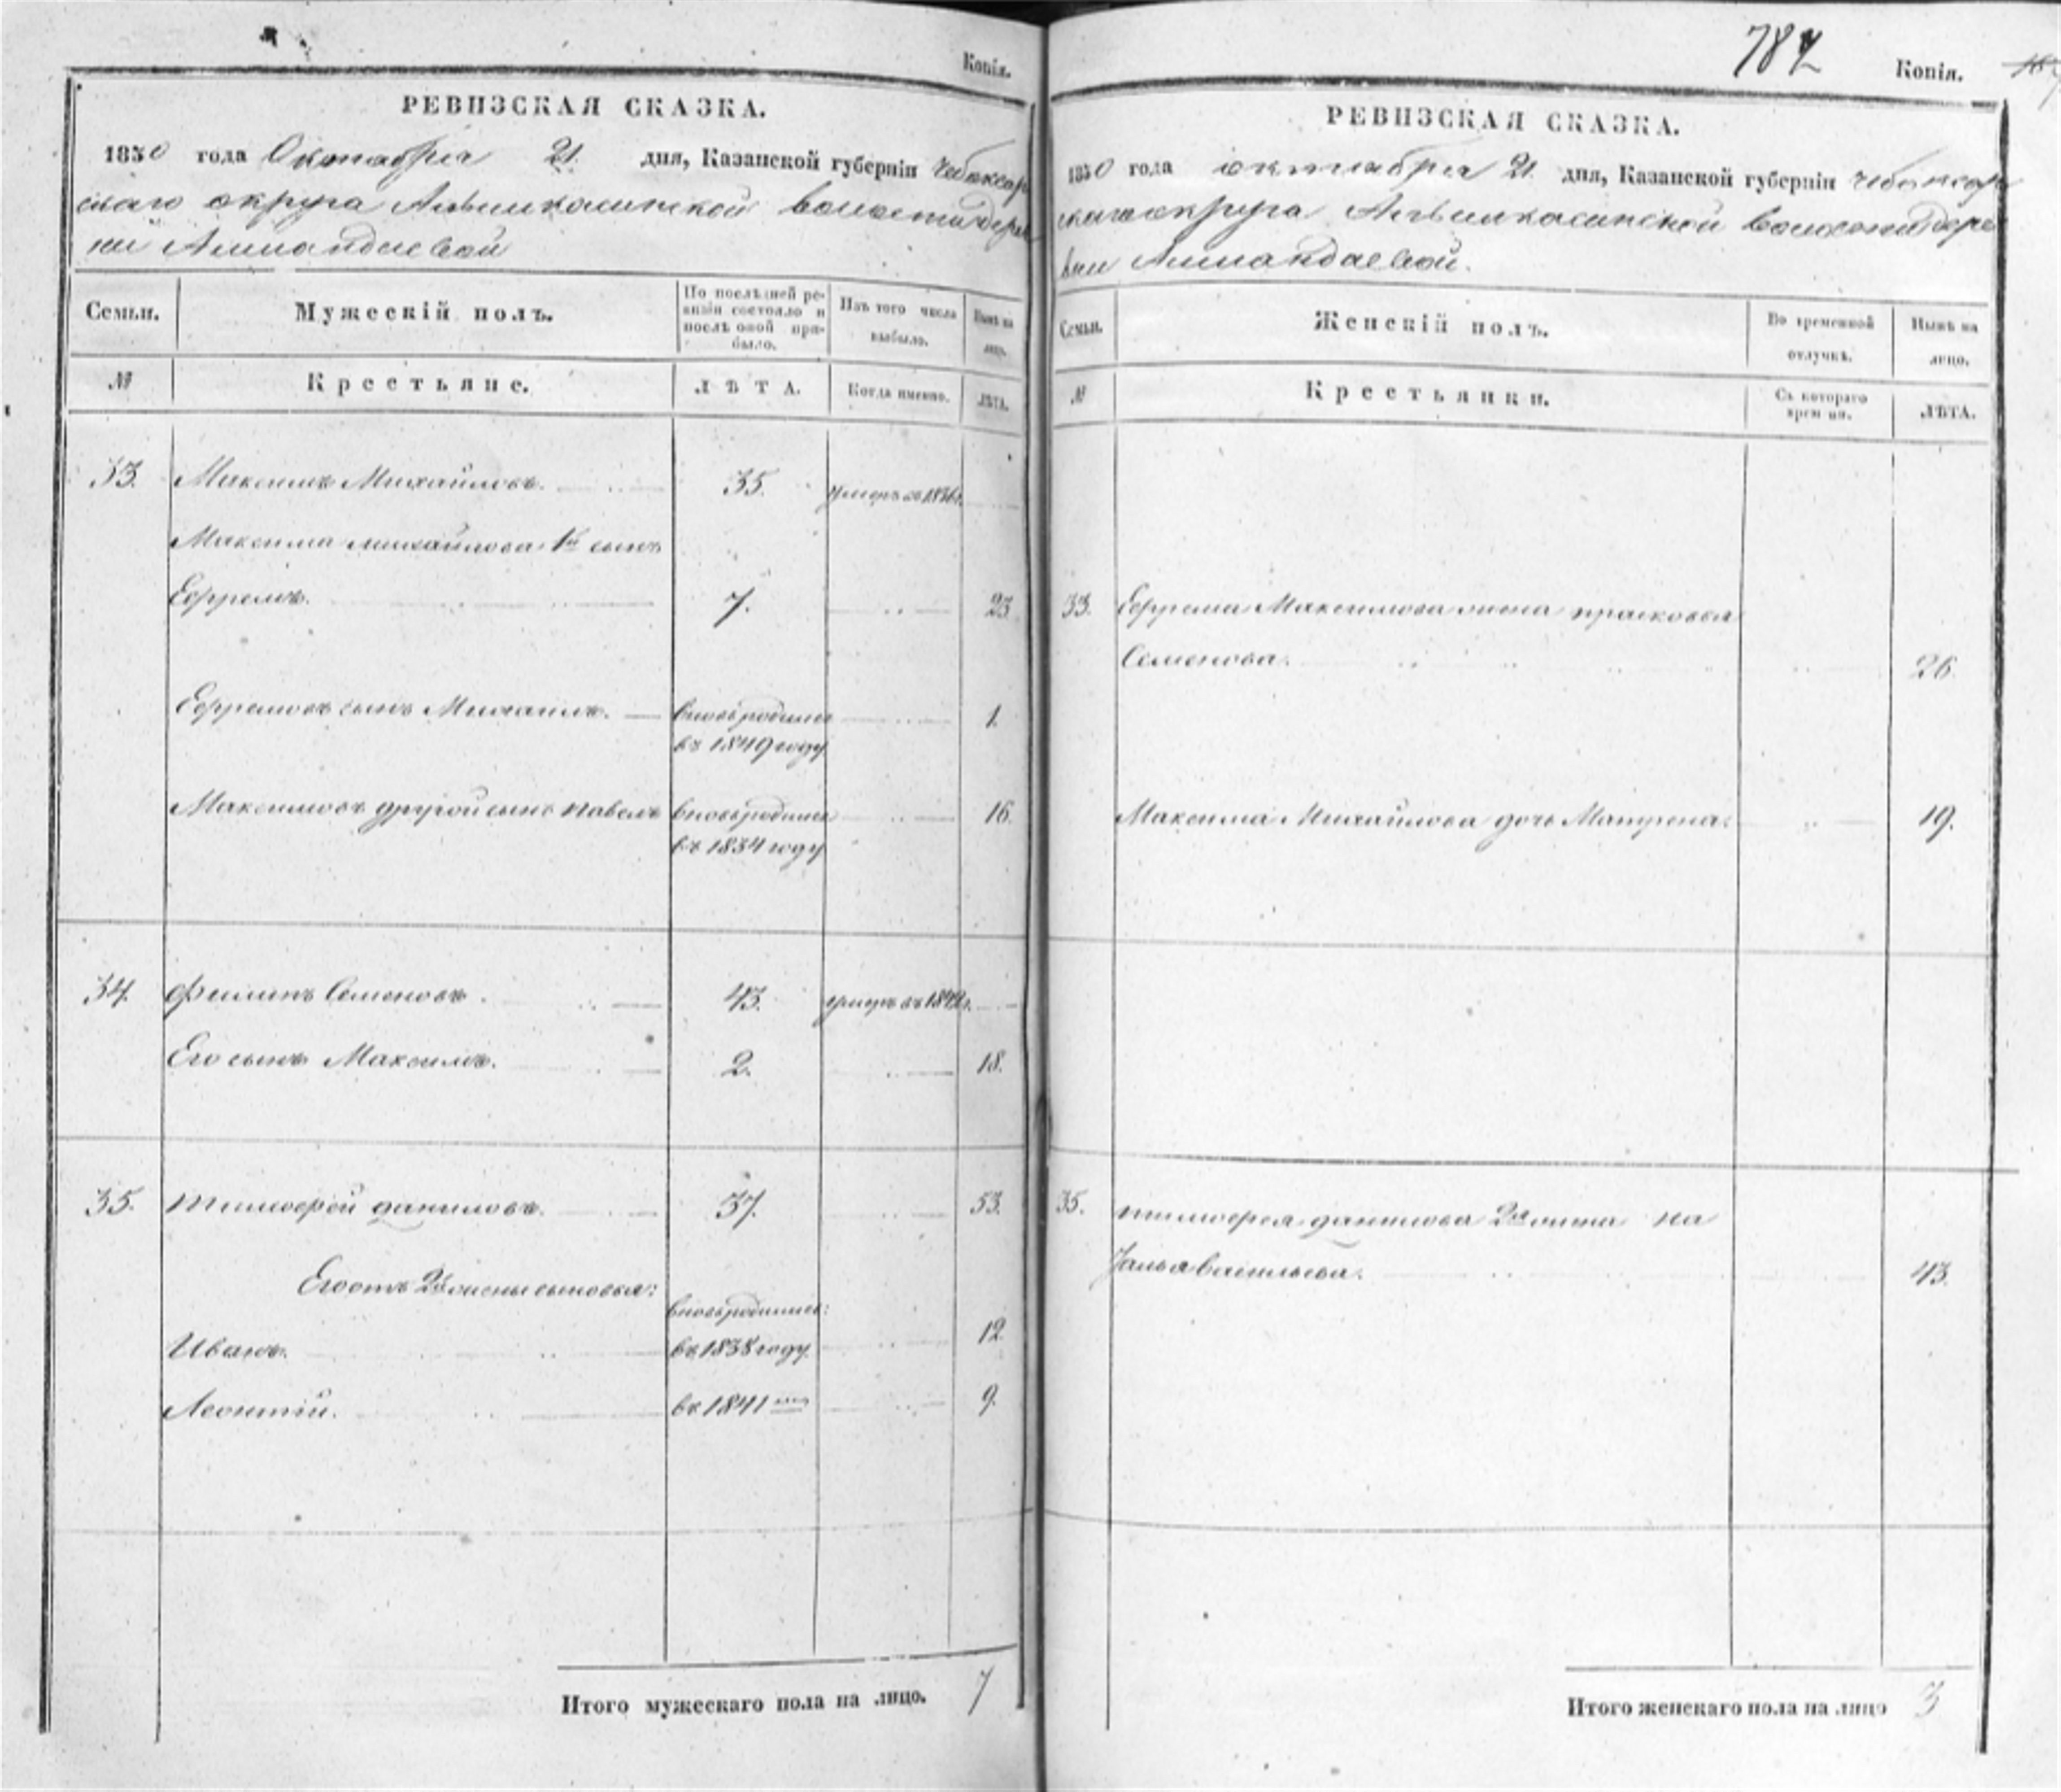 Копія.
РЕВИЗСКАЯ СКАЗКА.
1850 года Октября 21. дня, Казанской губерніи Чебоксар
скаго округа волости дерев
ни
Семьи. Мужескій полъ. По послѣдней ре-
визіи состояло и
послѣ оной при-
было. Изъ того числа
выбыло. Нынѣ на
лицо.
№ Крестьяне. ЛѢТА. Когда именно. ЛѢТА.
33. Максимъ Михайловъ. 35. умеръ въ 1836г.
Максима Михайлова 1й сынъ
Ефремъ. 7. 23
Ефремовъ сынъ Михаилъ. вновьродился 1.
въ 1849 году
Максимовъ другой сынъ Павелъ вновьродился 16.
въ 1834 году
34. Филипъ Семеновъ. 43. умеръ въ
Его сынъ Максимъ. 2. 18.
35. Тимофей Даниловъ. 37. 53.
Его отъ 2й жены сыновья:
вновьродились:
Иванъ. въ 1838 году 12
Леонтій. въ 1841 9.
Итого мужескаго пола на лицо. 7
787 Копія.
РЕВИЗСКАЯ СКАЗКА.
1850 года октября 21. дня, Казанской губерніи Чебоксар
скаго округа волости дере
вни
Семьи. Женскій полъ. Во временной
отлучкѣ. Нынѣ на
лицо.
№ Крестьянки. Съ котораго
времени. ЛѢТА.
33. Ефрема Максимова жена Прасковья
Семенова. 26.
Максима Михайлова дочь Матрена. 19.
35. Тимофея Данилова 2я жена На
талья Васильева. 43.
Итого женскаго пола на лицо 3